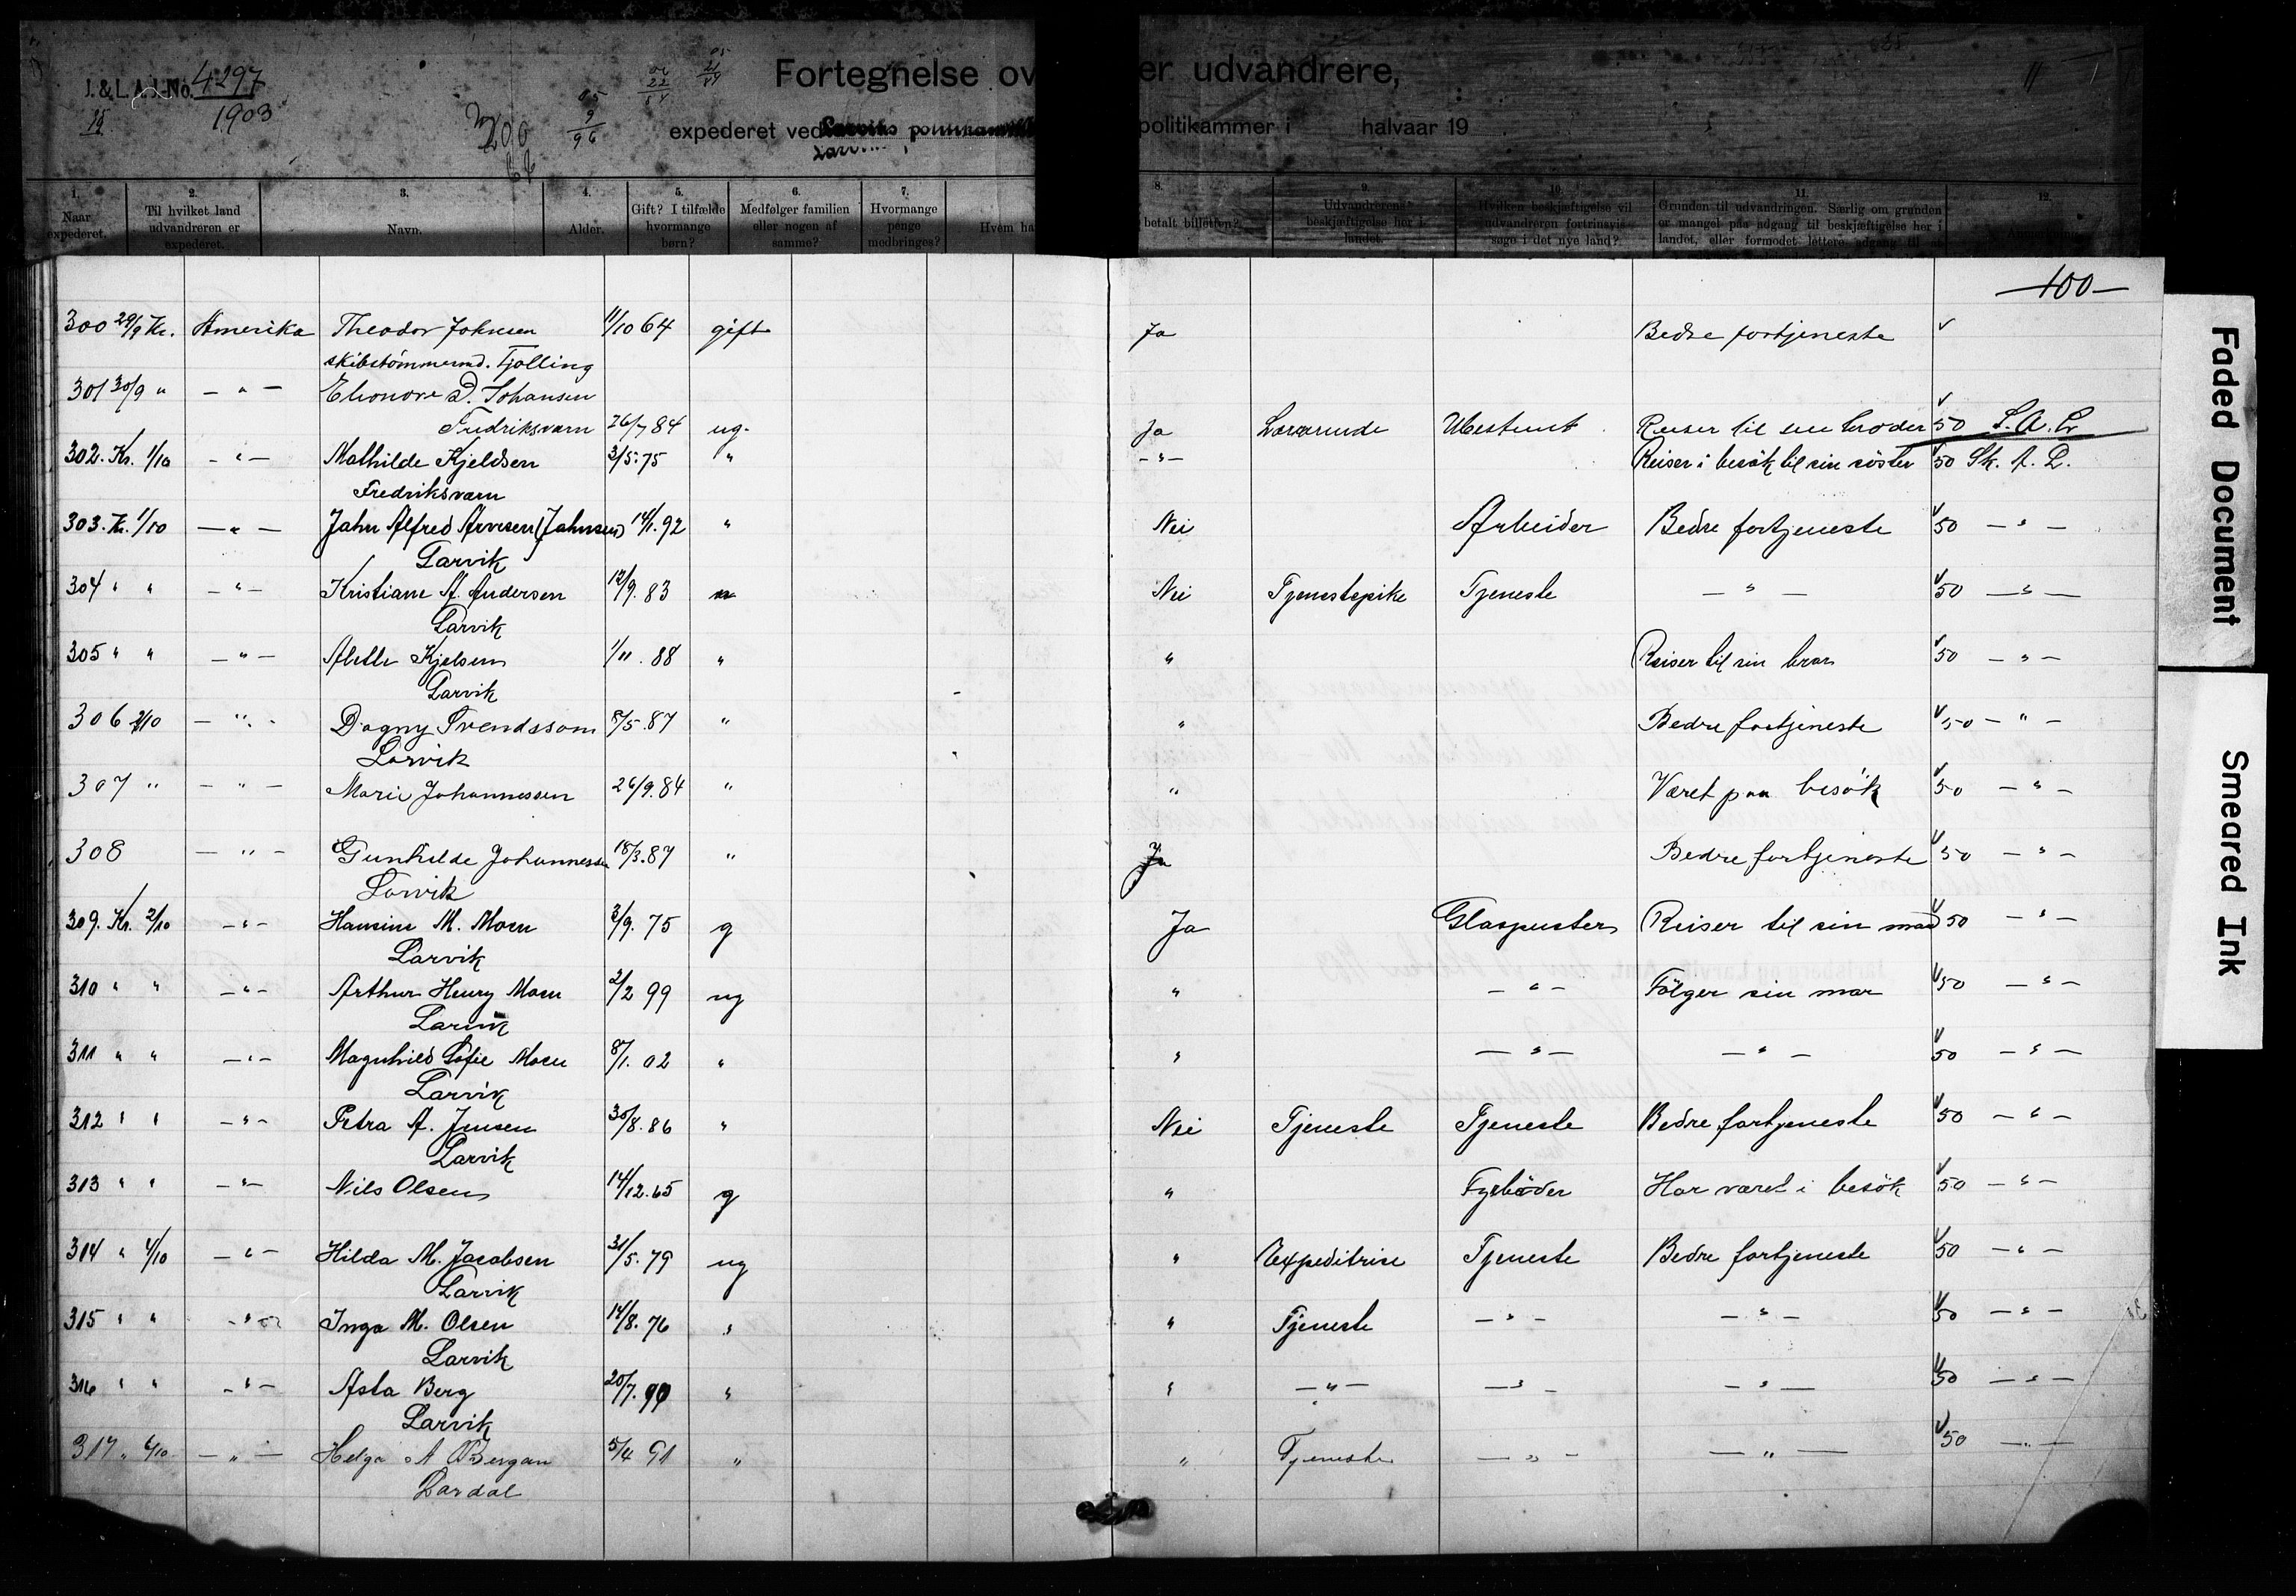 J. & L. A. J. No. 4297
1903
Fortegnelse ov er udvandrere,
expederet ved Larviks politikammer politikammer i halvaar 19
1. Naar expederet. 2. Til hvilket land udvandreren er expederet. 3. Navn. 4. Alder. 5. Gift? I tilfælde hvormange børn? 6. Medfølger familien eller nogen af samme? 7. Hvormange penge medbringes? Hvem ha 8. betalt billetten? 9. Udvandrerens beskjæftigelse her i landet. 10. Hvilken beskjæftigelse vil udvandreren fortrinsvis søge i det nye land? 11. Grunden til udvandringen. Særlig om grunden er mangel paa adgang til beskjæftigelse her i landet, eller formodet lettere adgang til 12.
100
300 29/9 Kr. Amerika Theodor Johnsen 11/10 64 gift Ja Bedre fortjeneste
skibstømmermd. Tjølling
301 30/9 " — " — Elionore D. Johansen
Fredriksværn 26/7 84 ug. Ja Ubestemt Reiser til en broder 50 S. A. L.
302. Kr. 1/10 — " — Mathilde Kjeldsen 3/5. 75 " — " — Reiser i besök til sin söster 50 Sk. A. L.
Fredriksværn
303. Kr. 1/10 — " — Jahn Alfred Arvesen (Jahnsen) 14/1. 92 " Nei Arbeider Bedre fortjeneste 50 — " —
Larvik
304 " " — " — Kristiane A. Andersen 12/9. 83 " Nei Tjenestepike Tjeneste — " — 50 — " —
Larvik
305 " " — " — Aletle Kjelsen 1/11. 88 " " Reiser til sin bror 50 — " —
Larvik
306 2/10 — " — Dagny Svendssom 8/5. 87 " " Bedre fortjeneste 50 — " —
Larvik
307 " — " — Marie Johannessen 26/9. 84 " " Været paa besök 50 — " —
308 — " — Gunhilde Johannessen 18/3. 87 " Ja Bedre fortjeneste 50 — " —
Larvik
309. Kr. 2/10 — " — Hansine M. Moen 3/9. 75 g Ja Glaspuster Reiser til sin man 50 — " —
Larvik
310 " " — " — Arthur Henry Moen 2/2 99 ug " — " — Fölger sin mor 50 — " —
Larvik
311 " " — " — Magnhild Sofie Moen 8/1. 02 " " — " — — " — 50 — " —
Larvik
312 " " — " — Petra A. Jensen 30/8. 86 " Nei Tjeneste Tjeneste Bedre fortjeneste 50 — " —
Larvik
313 " " — " — Nils Olsen 14/12. 65 g " Fyrböder Har været i besök 50 — " —
314 " 4/10 — " — Hilda M. Jacobsen 31/5. 79 ug " Expeditrise Tjeneste Bedre fortjeneste 50 — " —
Larvik
315 " " — " — Inga M. Olsen 14/8. 76 " " Tjeneste — " — — " — 50 — " —
Larvik
316 " " — " — Asta Berg 20/7. 90 " " — " — — " — — " — 50 — " —
Larvik
317 " 6/10 — " — Helga A Bergan 5/4 91 " " Tjeneste — " — — " — 50 — " —
Lardal
Faded Document
Smeared Ink